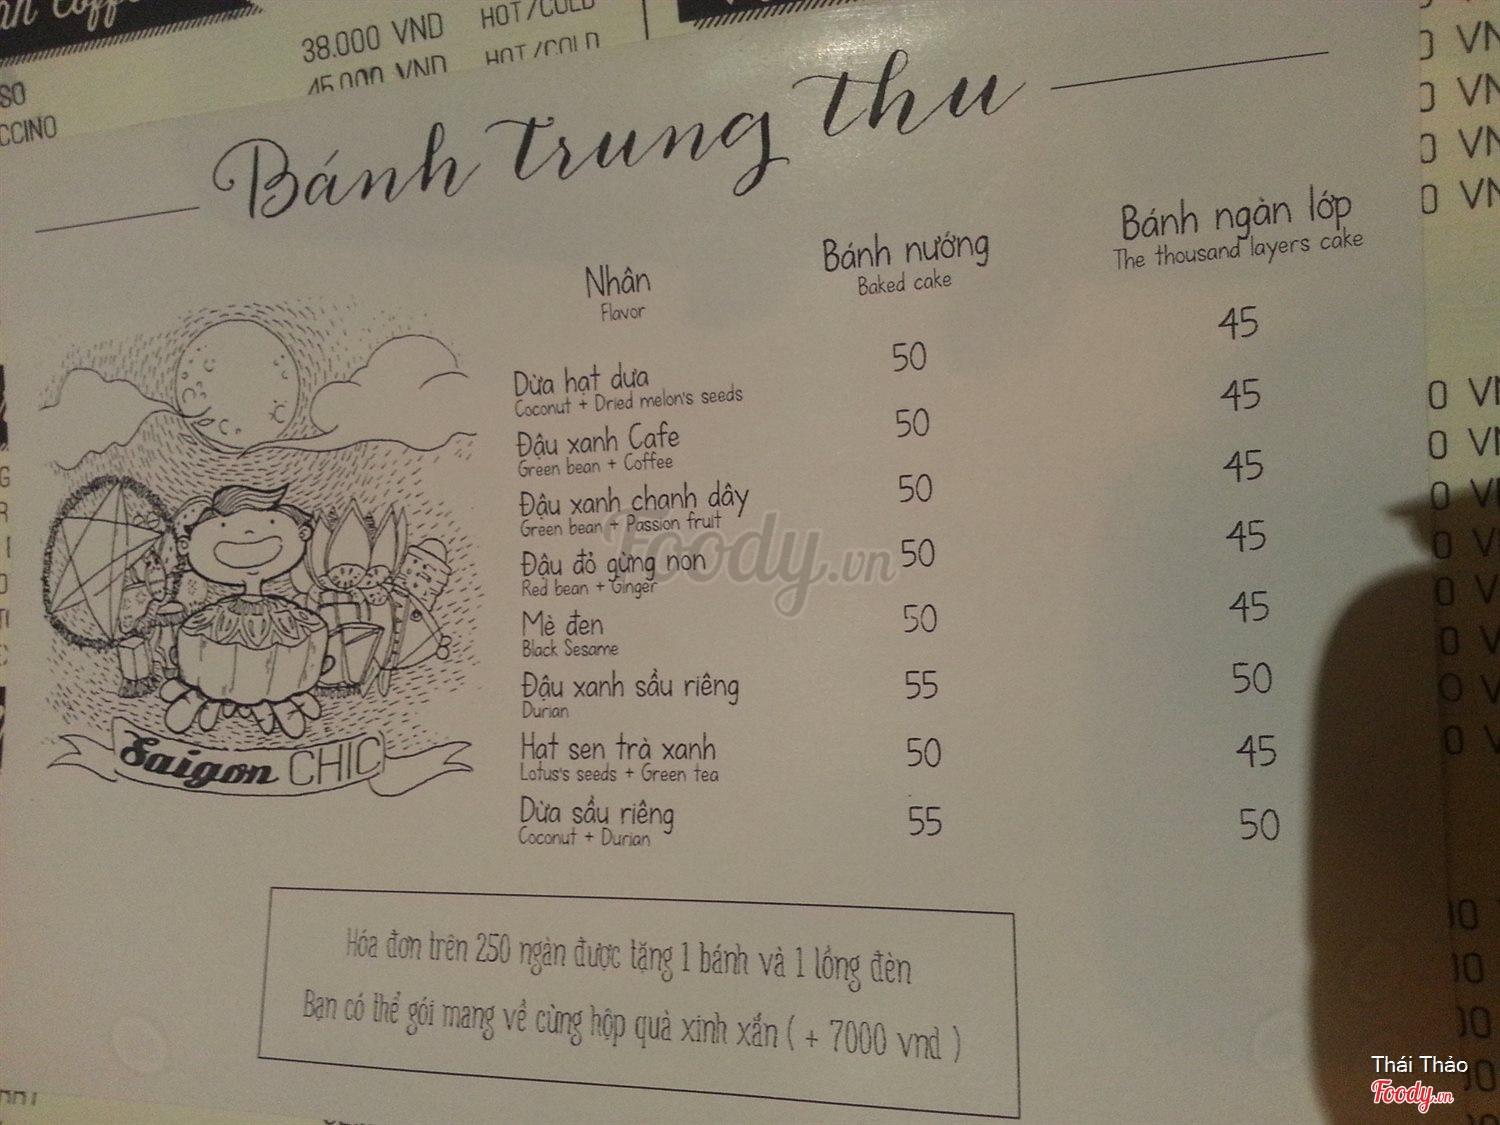 38.000 VND HOT/COLD
45.000 VND HOT/COLD
CCINO
Bánh trung thu
Nhân
Flavor
Bánh nướng
Baked cake
Bánh ngàn lớp
The thousand layers cake
Dừa hạt dưa 50 45
Coconut + Dried melon's seeds
Đậu xanh Cafe 50 45
Green bean + Coffee
Đậu xanh chanh dây 50 45
Green bean + Passion fruit
Đậu đỏ gừng non 50 45
Red bean + Ginger
Mè đen 50 45
Black Sesame
Đậu xanh sầu riêng 55 50
Durian
Hạt sen trà xanh 50 45
Lotus's seeds + Green tea
Dừa sầu riêng 55 50
Coconut + Durian
Saigon CHIC
Hóa đơn trên 250 ngàn được tặng 1 bánh và 1 lồng đèn
Bạn có thể gói mang về cùng hộp quà xinh xắn ( + 7000 vnd )
Foody.vn
Thái Thảo
Foody.vn